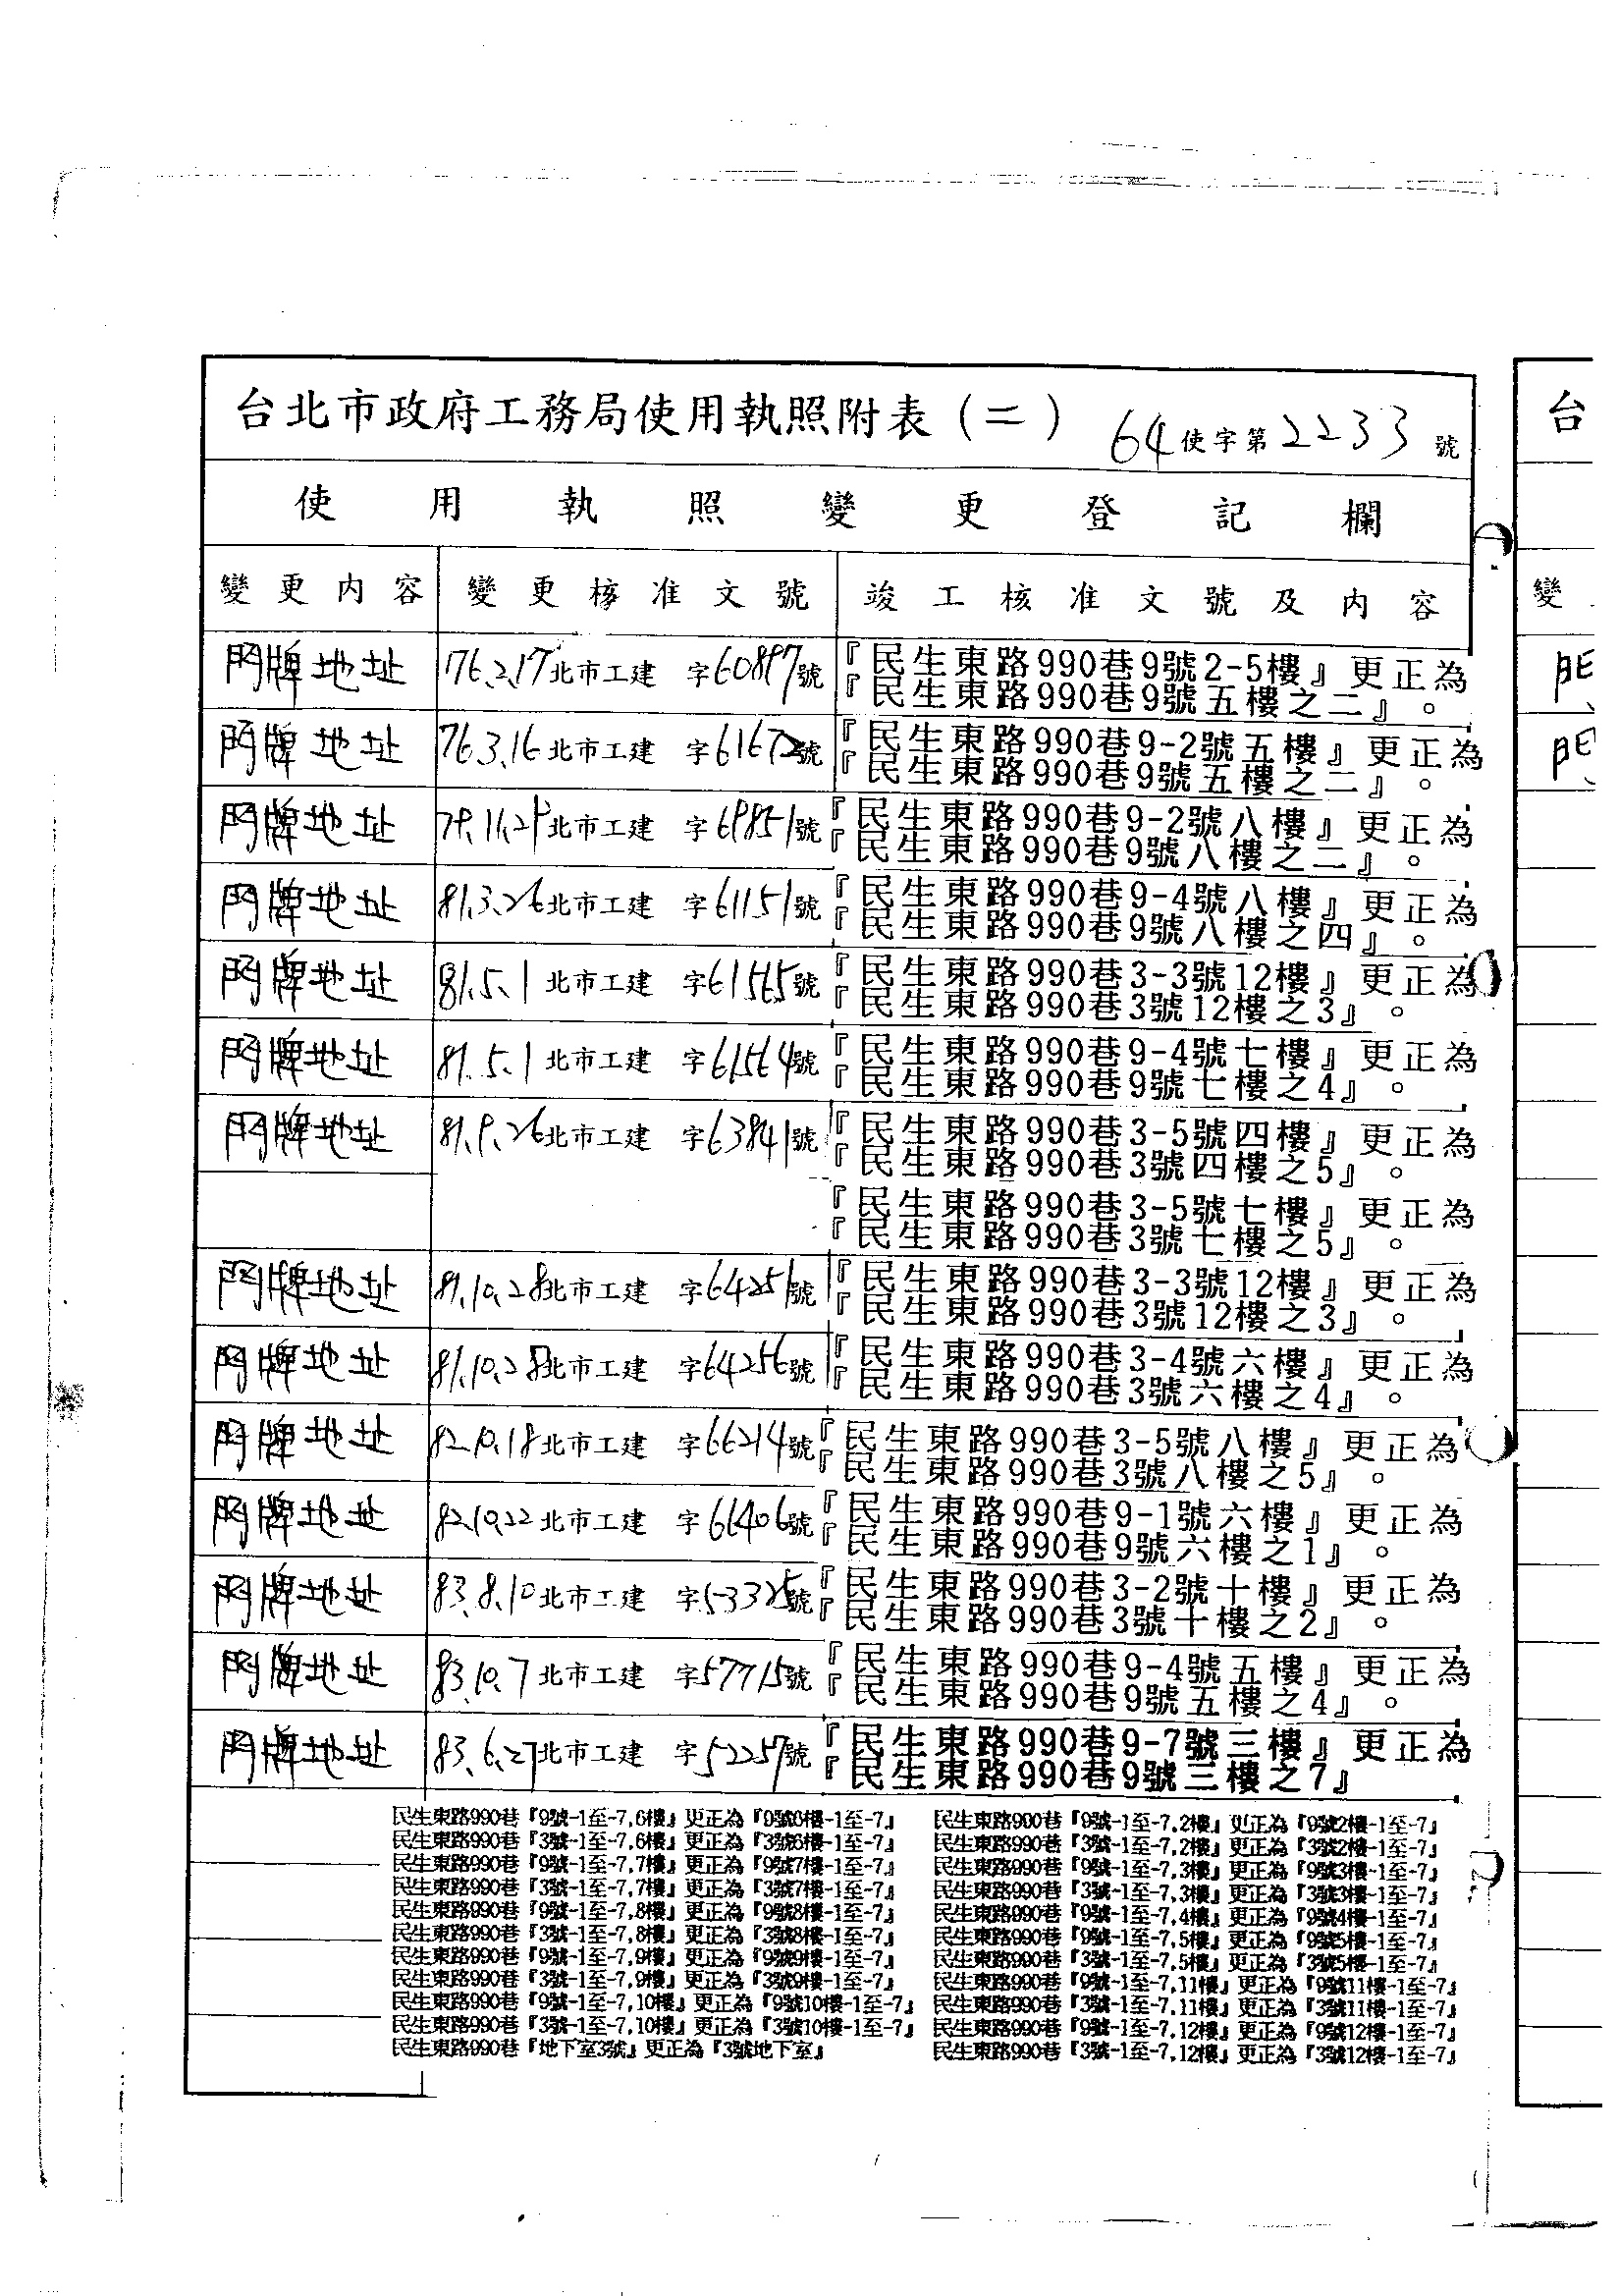 台北市政府工務局使用執照附表(二) 64使字第2233號
使用執照變更登記欄
變更內容 變更核准文號 竣工核准文號及內容
門牌地址 76.2.17北市工建 字60897號 『民生東路990巷9號2-5樓』更正為
『民生東路990巷9號五樓之二』。
門牌地址 76.3.16北市工建 字61672號 『民生東路990巷9-2號五樓』更正為
『民生東路990巷9號五樓之二』。
門牌地址 北市工建 字69851號 『民生東路990巷9-2號八樓』更正為
『民生東路990巷9號八樓之二』。
門牌地址 81.3.26北市工建 字61151號 『民生東路990巷9-4號八樓』更正為
『民生東路990巷9號八樓之四』。
門牌地址 81.5.1北市工建 字61565號 『民生東路990巷3-3號12樓』更正為
『民生東路990巷3號12樓之3』。
門牌地址 81.5.1北市工建 字61564號 『民生東路990巷9-4號七樓』更正為
『民生東路990巷9號七樓之4』。
門牌地址 81.9.26北市工建 字63841號 『民生東路990巷3-5號四樓』更正為
『民生東路990巷3號四樓之5』。
『民生東路990巷3-5號七樓』更正為
『民生東路990巷3號七樓之5』。
門牌地址 81.10.28北市工建 字64251號 『民生東路990巷3-3號12樓』更正為
『民生東路990巷3號12樓之3』。
門牌地址 81.10.28北市工建 字64256號 『民生東路990巷3-4號六樓』更正為
『民生東路990巷3號六樓之4』。
門牌地址 82.10.18北市工建 字66214號 『民生東路990巷3-5號八樓』更正為
『民生東路990巷3號八樓之5』。
門牌地址 82.10.22北市工建 字66406號 『民生東路990巷9-1號六樓』更正為
『民生東路990巷9號六樓之1』。
門牌地址 83.8.10北市工建 字53325號 『民生東路990巷3-2號十樓』更正為
『民生東路990巷3號十樓之2』。
門牌地址 83.10.7北市工建 字57715號 『民生東路990巷9-4號五樓』更正為
『民生東路990巷9號五樓之4』。
門牌地址 83.6.27北市工建 字52257號 『民生東路990巷9-7號三樓』更正為
『民生東路990巷9號三樓之7』
民生東路990巷『9號-1至-7,6樓』更正為『9號6樓-1至-7』
民生東路990巷『3號-1至-7,6樓』更正為『3號6樓-1至-7』
民生東路990巷『9號-1至-7,7樓』更正為『9號7樓-1至-7』
民生東路990巷『3號-1至-7,7樓』更正為『3號7樓-1至-7』
民生東路990巷『9號-1至-7,8樓』更正為『9號8樓-1至-7』
民生東路990巷『3號-1至-7,8樓』更正為『3號8樓-1至-7』
民生東路990巷『9號-1至-7,9樓』更正為『9號9樓-1至-7』
民生東路990巷『3號-1至-7,9樓』更正為『3號9樓-1至-7』
民生東路990巷『9號-1至-7,10樓』更正為『9號10樓-1至-7』
民生東路990巷『3號-1至-7,10樓』更正為『3號10樓-1至-7』
民生東路990巷『地下室3號』更正為『3號地下室』
民生東路990巷『9號-1至-7,2樓』更正為『9號2樓-1至-7』
民生東路990巷『3號-1至-7,2樓』更正為『3號2樓-1至-7』
民生東路990巷『9號-1至-7,3樓』更正為『9號3樓-1至-7』
民生東路990巷『3號-1至-7,3樓』更正為『3號3樓-1至-7』
民生東路990巷『9號-1至-7,4樓』更正為『9號4樓-1至-7』
民生東路990巷『9號-1至-7,5樓』更正為『9號5樓-1至-7』
民生東路990巷『3號-1至-7,5樓』更正為『3號5樓-1至-7』
民生東路990巷『9號-1至-7,11樓』更正為『9號11樓-1至-7』
民生東路990巷『3號-1至-7,11樓』更正為『3號11樓-1至-7』
民生東路990巷『9號-1至-7,12樓』更正為『9號12樓-1至-7』
民生東路990巷『3號-1至-7,12樓』更正為『3號12樓-1至-7』
台
變
門
門